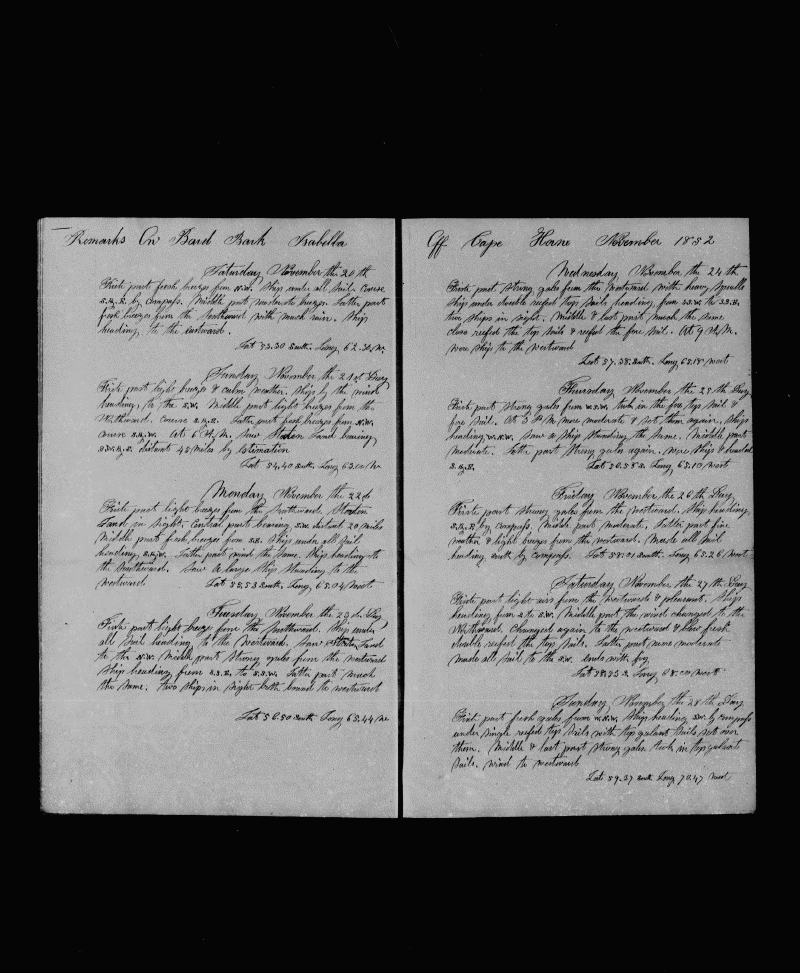 Remarks On Bord Bark Isabella
Saturday November the 20th
First part fresh breezes from N.W. Ship under all sail. Course
by compass. Middle part moderate breezes. Latter part
fresh breezes from the Northward with much rain. Ship
heading to the eastward.
Lat 53.30 South. Long 62.30 W.
Sunday November the 21st Day
First part light breezes & calm weather. Ships by the
heading to the S.W. Middle part light breezes from the
Northward. course Latter part fresh breezes from
course At 6 P.M. saw Staten Land bearing
distant 45 miles by estimation
Lat 54.40 South. Long 63.00 W
Monday November the 22d
First part light breezes from the Northward. Staten
Land in sight. Central part bearing S.W. distant 20 miles
Middle part fresh breezes from S.E. Ship under all sail
heading Latter part wind the same. Ship heading to
the Southward. Saw a large ship standing to the
westward Lat 55.53 South. Long 65.04 West
Tuesday November the 23d Day
First part light breeze from the Northward. Ship under
all sail heading to the westward. Saw Staten Land
to the N.W. Middle part strong gales from the westward
Ship heading from to S.S.W. Latter part much
the same. two ships in sight both bound to westward
Lat 56.50 South Long 65.44 W
Off Cape Horne November 1852
Wednesday November the 24th
First part strong gales from the westward with heavy squalls
ship under double reefed top sails heading from S.S.W. to S.S.E.
two ships in sight. Middle & last part much the same
close reefed the top sails & reefed the fore sail. At 9 A.M.
wore ship to the westward
Lat 57.38 South. Long 65.18 West
Thursday November the 25th Day
First part strong gales from W.S.W. took in the fore top sail &
fore sail. At 3 P.M. more moderate & set them again. Ships
heading saw a ship standing the same. Middle part
moderate. Latter part strong gales again, wore ship & headed
Lat 56.58 S. Long 65.10 West
Friday November the 26th Day
First part strong gales from the westward. Ship heading
by compass. Middle part moderate. Latter part fine
weather & light breezes from the westward. Made all sail
heading south by compass. Lat 58.01 South. Long 65.26 West
Saturday November the 27th Day
First part light airs from the westward & pleasant. Ships
heading from S to S.W. Middle part the wind changed to the
Northward. Changed again to the westward & blew fresh
double reefed the top sails. Latter part more moderate
made all sail to the S.W. ends with fog
Lat 58.35 S. Long 68.00 West
Sunday November the 28th Day
First part fresh gales from W.N.W. Ship heading S.W. by compass
under single reefed top sails with top galant sails set over
them. Middle & last part strong gales took in top galant
sails. wind to westward
Lat 59.37 South Long 70.47 West